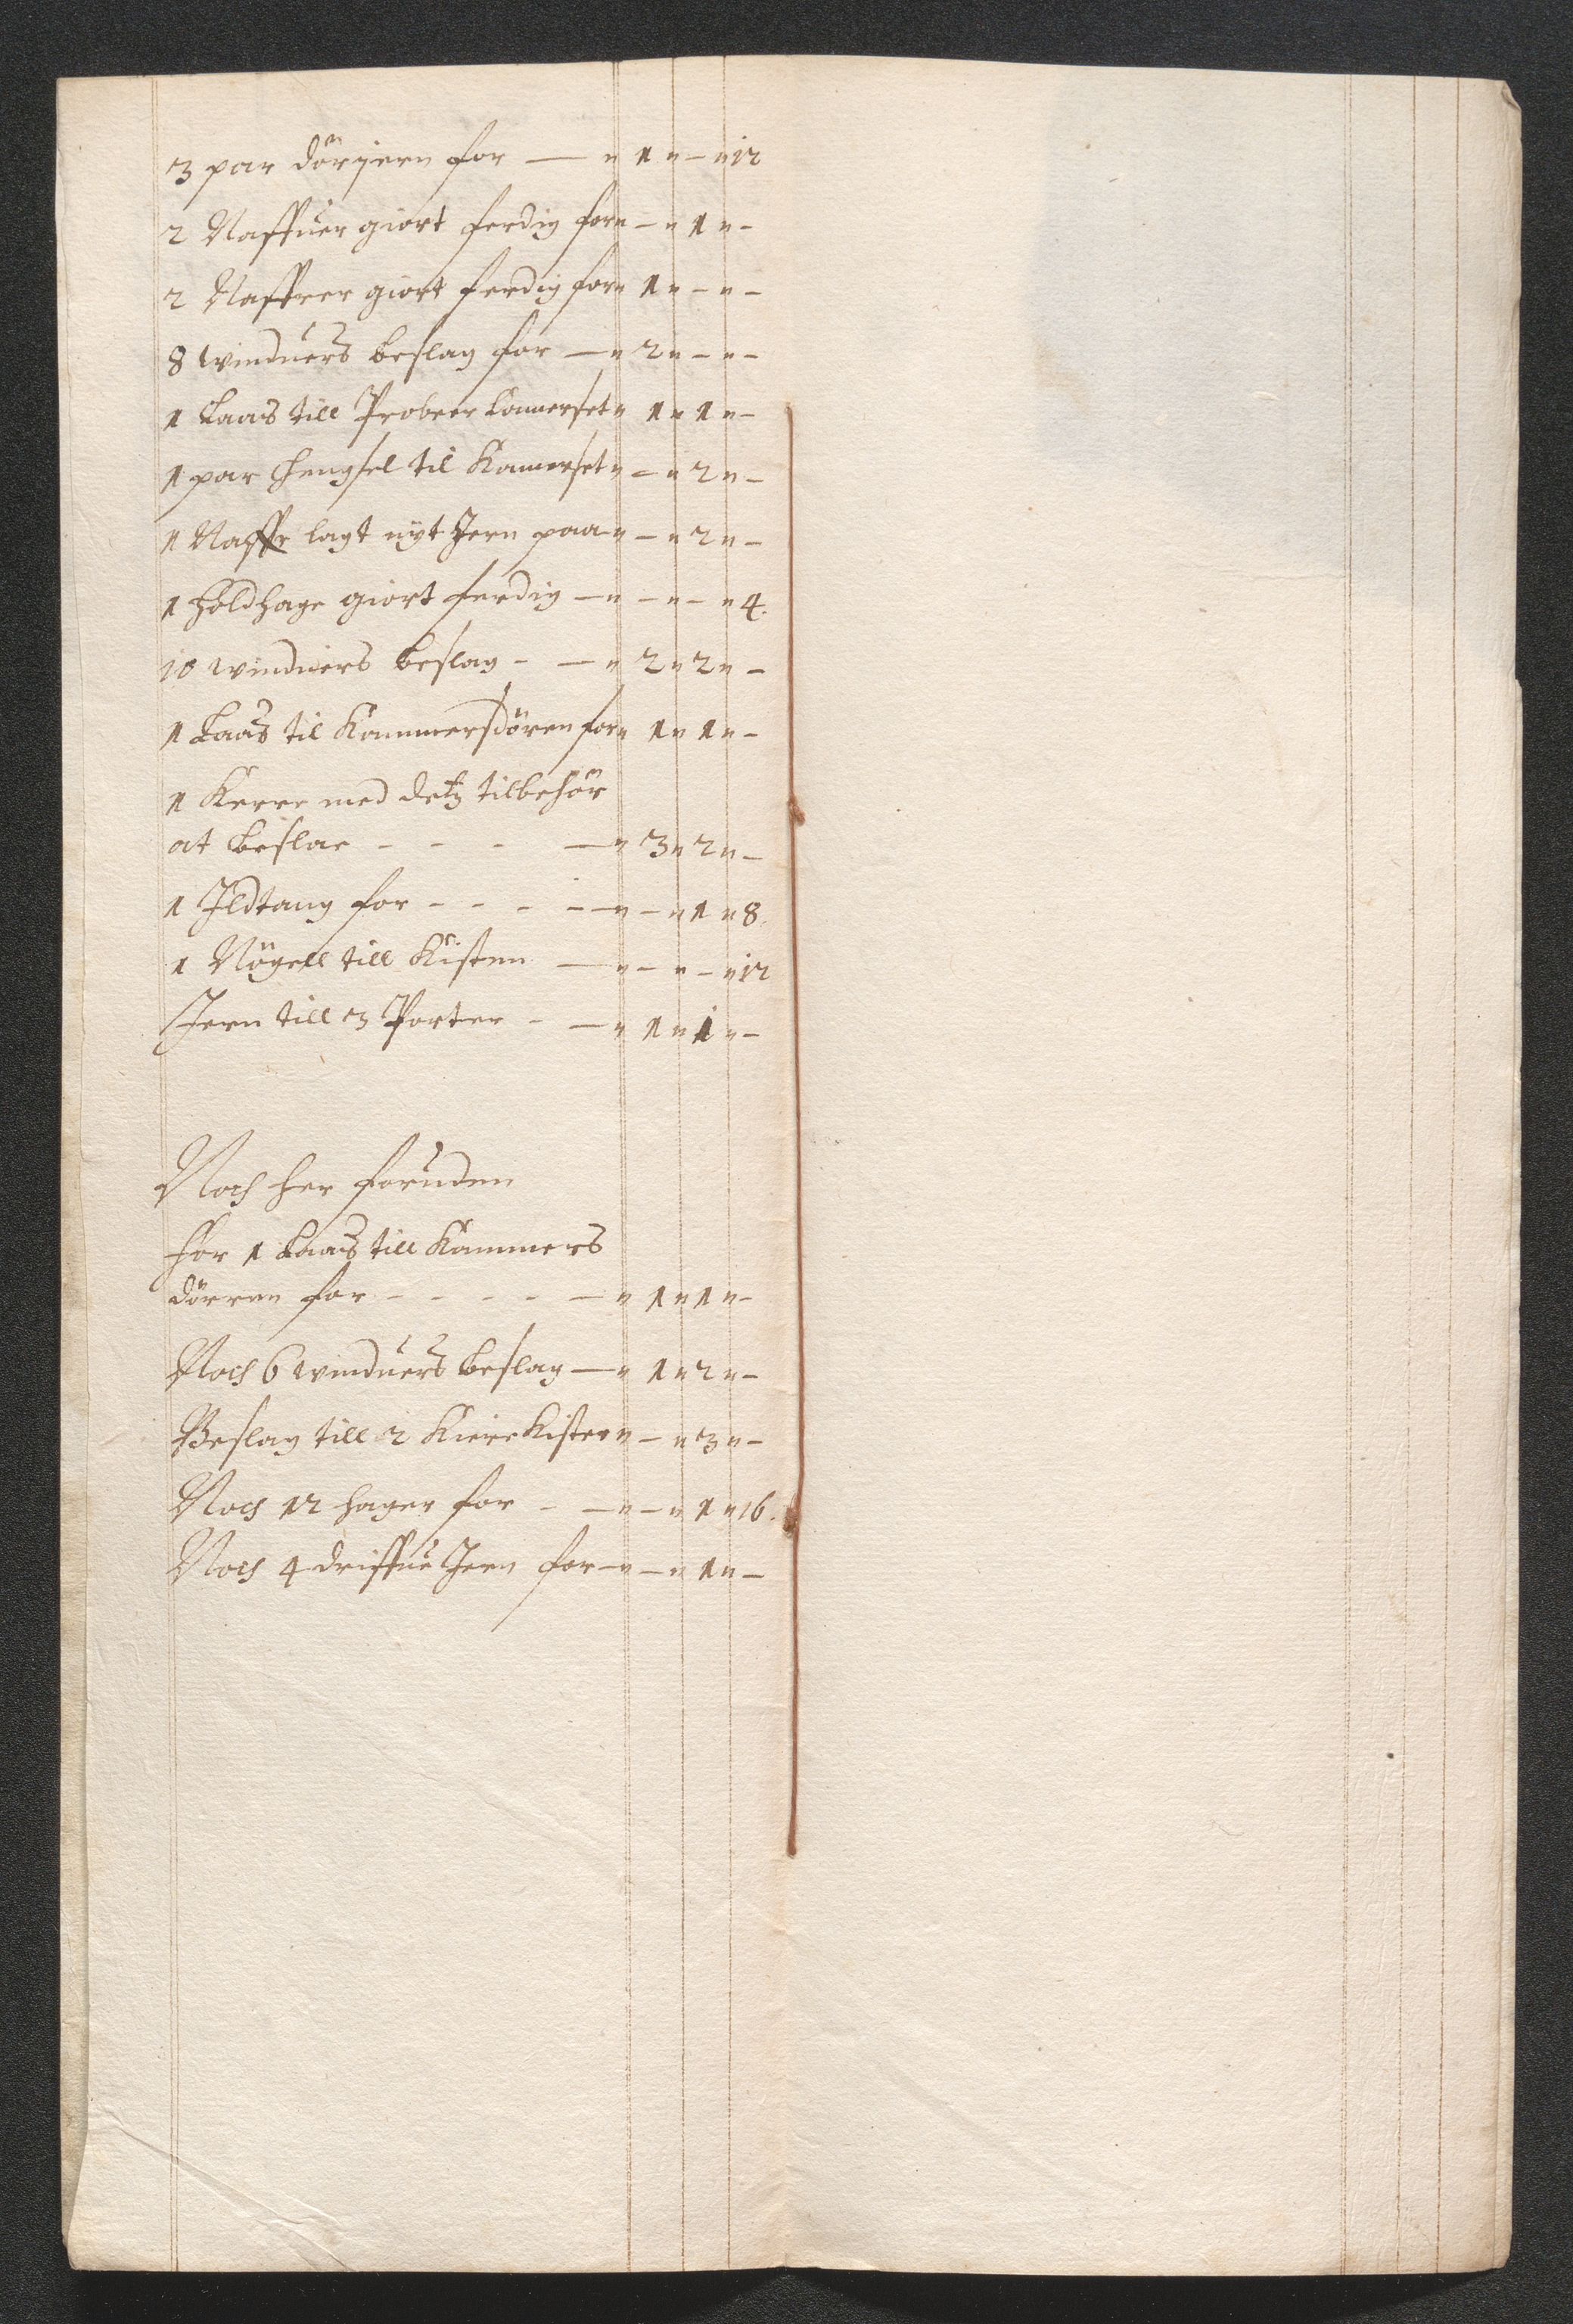 3 par dörjern for — „ 1 „ – „ 12
2 Naffuer giort ferdig for „ – „ 1 „ –
2 Naffrer giort ferdig for „ 1 „ – „ –
8 winduers beslag for — „ 2 „ – „ –
1 Laas till Probeer Kamerset „ 1 „ 1 „ –
1 par hengsel til Kamerset „ – „ 2 „ –
1 Naffr lagt nyt Jern paa „ – „ 2 „ –
1 holdhage giort ferdig — „ – „ – „ 4.
10 winduers beslag - — „ 2 „ 2 „ –
1 Laas til Kammersdören for „ 1 „ 1 „ –
1 Kerre med detz tilbehör
at beslae - - - — „ 3 „ 2 „ –
1 Ildtang for - - - - — „ – „ 1 „ 8.
1 Nögell till Kisten — „ – „ – „ 12
Jern till 3 Porter - — „ 1 „ 1 „ –
Noch her foruden
for 1 Laas till Kammers
dörren for - - - - — „ 1 „ 1 „ –
Noch 6 winduers beslag — „ 1 „ 2 „ –
Beslag till 2 Kiere Kister „ – „ 3 „ –
Noch 12 hager for - — „ – „ 1 „ 16.
Noch 4 driffue Jern for — „ – „ 1 „ –